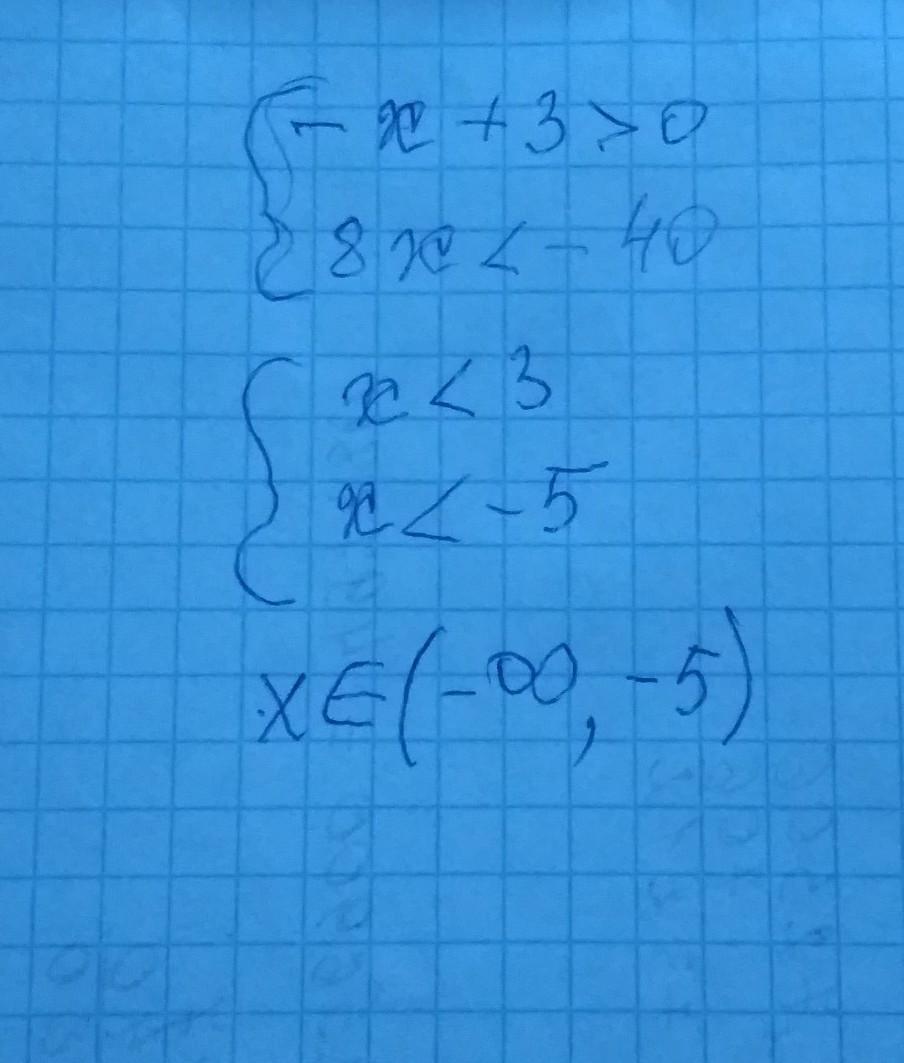 { - x + 3 > 0
8x < - 40
{ x < 3
x < -5
x ∈ (-∞, -5)